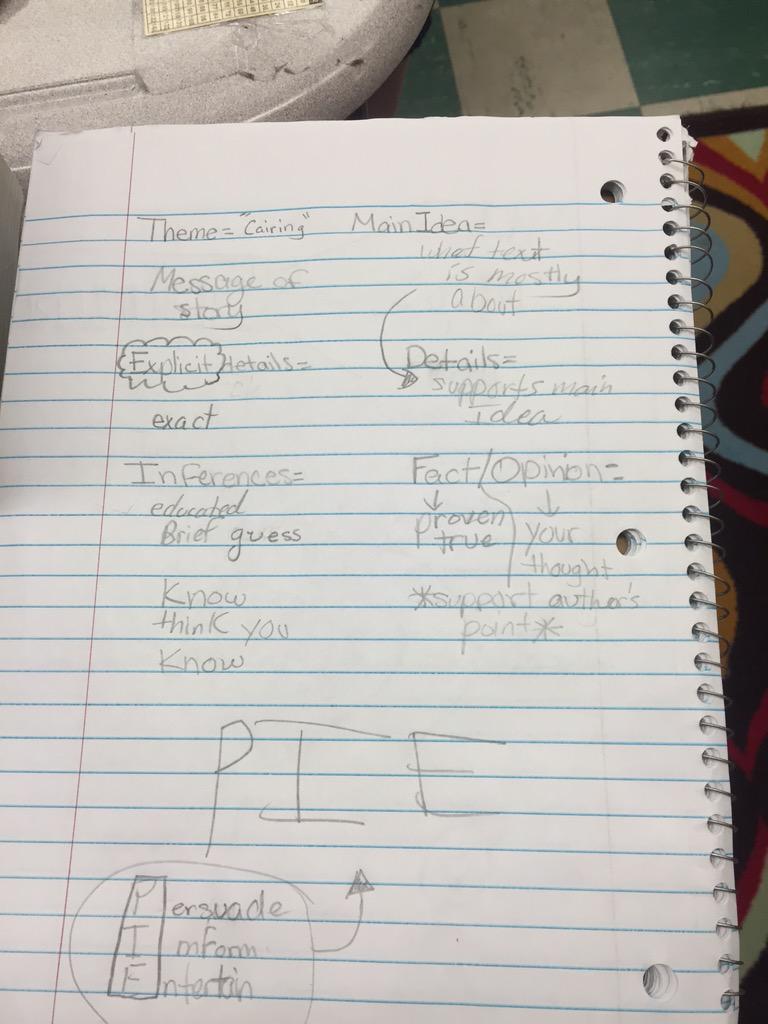 Theme= "Cairing"
Message of
story
Main Idea=
what text
is mostly
about
Explicit details=
exact
Details=
supports main
Idea
Inferences=
educated
Brief guess
Know
think you
Know
Fact/Opinion=
proven
true
your
thought
*support author's
point*
PIE
Persuade
Imform
Entertain